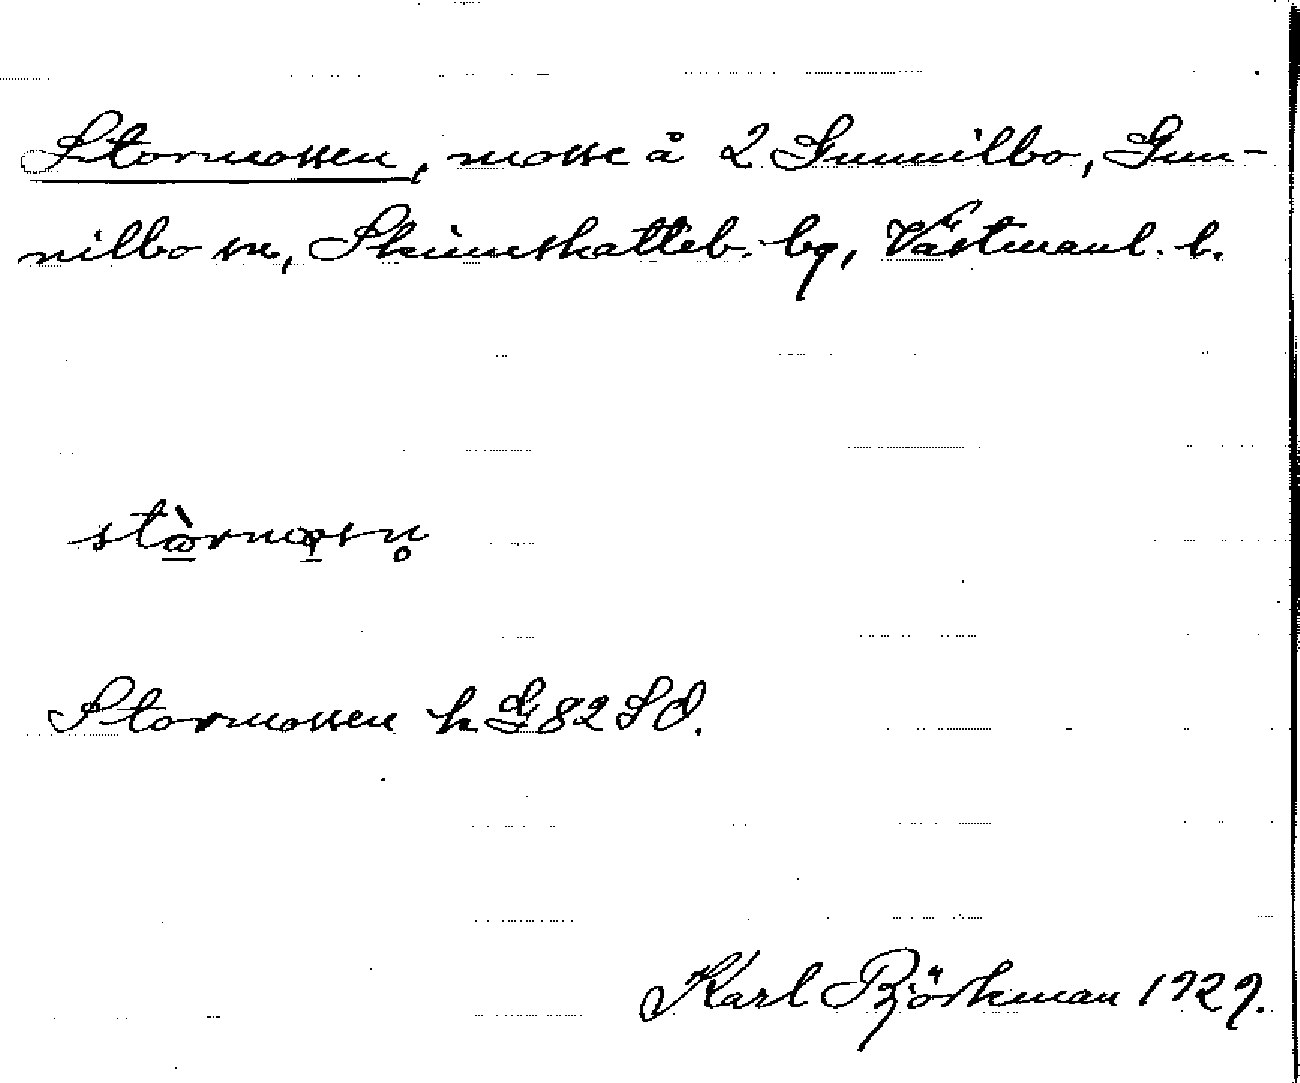 Stormossen, mosse å 2 Gunnilbo, Gun-
nilbo sn, Skinnskatteb. bg, Västmanl. l.
Stormossen k G 82 SO.
Karl Björkman 1929.